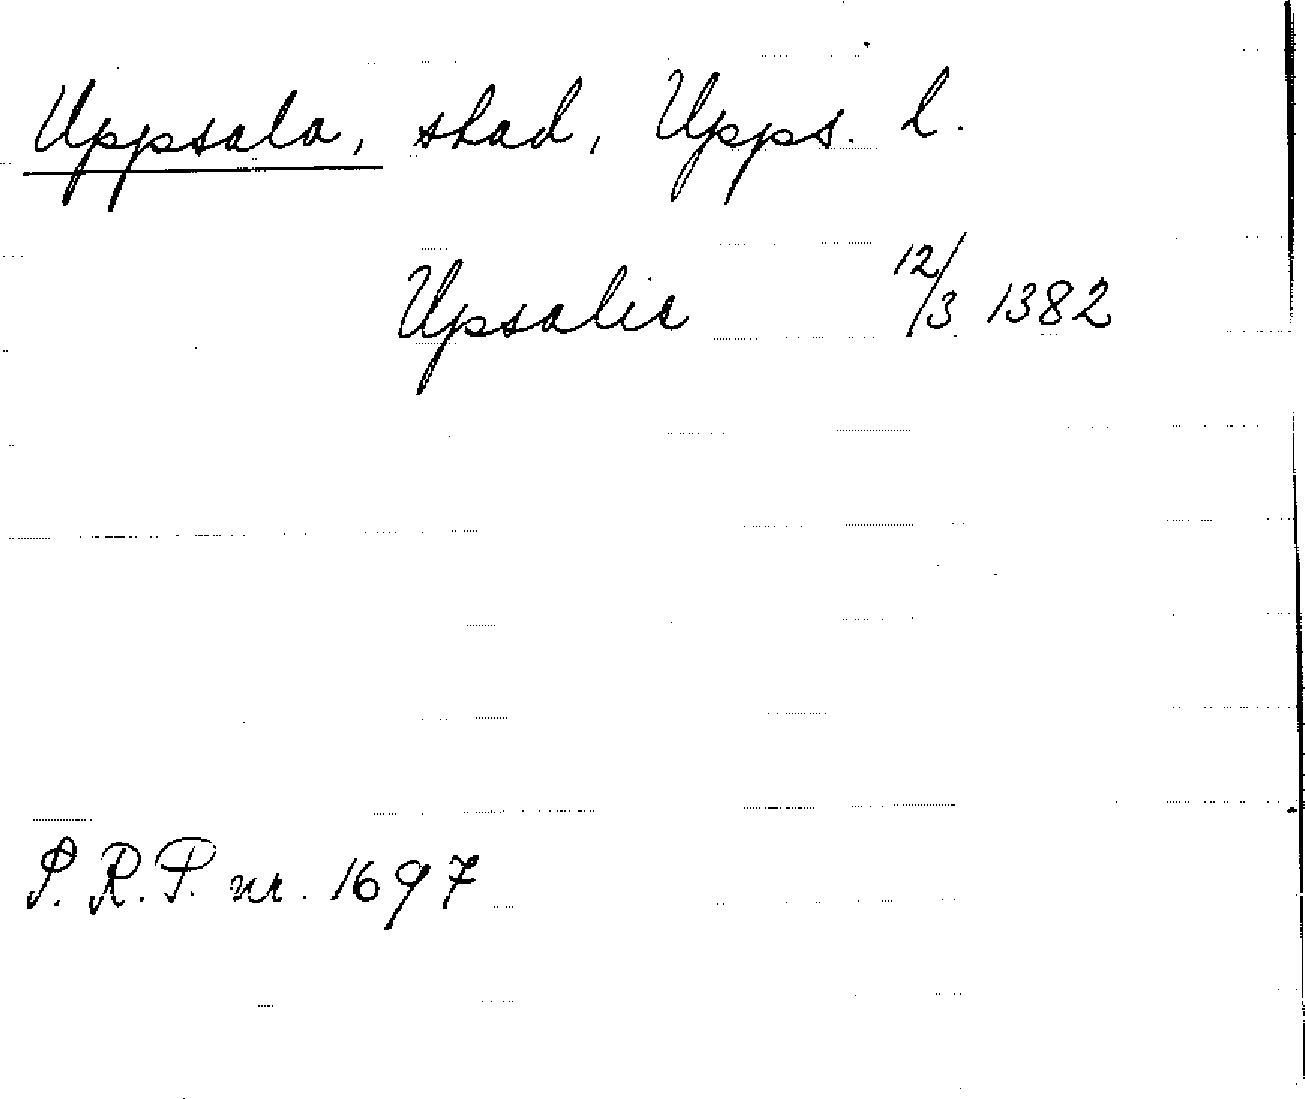 Uppsala, stad, Upps. l.
Upsalie 12/3 1382
S.R.P. nr. 1697